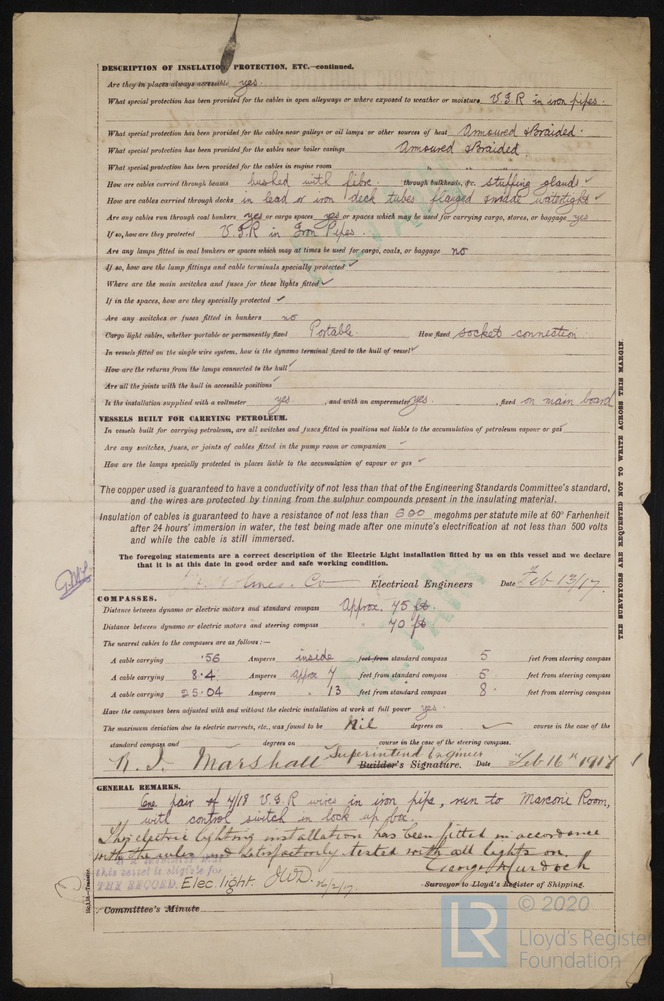 DESCRIPTION OF INSULATION, PROTECTION, ETC.—continued.
Are they in places always accessible yes.
What special protection has been provided for the cables in open alleyways or where exposed to weather or moisture V.I.R in iron pipes.
What special protection has been provided for the cables near galleys or oil lamps or other sources of heat Armoured & Braided.
What special protection has been provided for the cables near boiler casings Armoured & Braided.
What special protection has been provided for the cables in engine room " "
How are cables carried through beams bushed with fibre. through bulkheads, &c. stuffing glands ✓
How are cables carried through decks in lead or iron deck tubes flanged & made watertight ✓
Are any cables run through coal bunkers yes or cargo spaces yes or spaces which may be used for carrying cargo, stores, or baggage yes
If so, how are they protected V.I.R in Iron Pipes.
Are any lamps fitted in coal bunkers or spaces which may at times be used for cargo, coals, or baggage no
If so, how are the lamp fittings and cable terminals specially protected ✓
Where are the main switches and fuses for these lights fitted ✓
If in the spaces, how are they specially protected ✓
Are any switches or fuses fitted in bunkers no
Cargo light cables, whether portable or permanently fixed Portable. How fixed socket connection
In vessels fitted on the single wire system, how is the dynamo terminal fixed to the hull of vessel ✓
How are the returns from the lamps connected to the hull ✓
Are all the joints with the hull in accessible positions ✓
Is the installation supplied with a voltmeter yes. , and with an amperemeter yes. , fixed on main board
VESSELS BUILT FOR CARRYING PETROLEUM.
In vessels built for carrying petroleum, are all switches and fuses fitted in positions not liable to the accumulation of petroleum vapour or gas ✓
Are any switches, fuses, or joints of cables fitted in the pump room or companion ✓
How are the lamps specially protected in places liable to the accumulation of vapour or gas ✓
The copper used is guaranteed to have a conductivity of not less than that of the Engineering Standards Committee's standard,
and the wires are protected by tinning from the sulphur compounds present in the insulating material.
Insulation of cables is guaranteed to have a resistance of not less than 600 megohms per statute mile at 60° Farhenheit
after 24 hours' immersion in water, the test being made after one minute's electrification at not less than 500 volts
and while the cable is still immersed.
The foregoing statements are a correct description of the Electric Light installation fitted by us on this vessel and we declare
that it is at this date in good order and safe working condition.
Co Electrical Engineers Date Feb 13/17.
COMPASSES.
Distance between dynamo or electric motors and standard compass Approx. 75 ft.
Distance between dynamo or electric motors and steering compass 70 ft
The nearest cables to the compasses are as follows:—
A cable carrying .56 Amperes inside feet from standard compass 5 feet from steering compass
A cable carrying 8.4 Amperes approx 7 feet from standard compass 5 feet from steering compass
A cable carrying 25.04 Amperes " 13 feet from standard compass 8 feet from steering compass
Have the compasses been adjusted with and without the electric installation at work at full power yes.
The maximum deviation due to electric currents, etc., was found to be Nil degrees on ✓ course in the case of the
standard compass and degrees on course in the case of the steering compass.
R. J. Marshall Superintend Engineer Builder's Signature. Date Feb 16th 1917
GENERAL REMARKS.
One pair of 7/18 V.I.R wires in iron pipe, run to Marconi Room,
with control switch in lock up box.
This electric lighting installation has been fitted in accordance
with the rules and satisfactorily tested with all lights on.
this vessel is eligible for
THE RECORD. Elec. light. JWD. 26/2/17. George Murdoch
Surveyor to Lloyd's Register of Shipping.
Committee's Minute
THE SURVEYORS ARE REQUESTED NOT TO WRITE ACROSS THIS MARGIN
LR © 2020
Lloyd's Register
Foundation